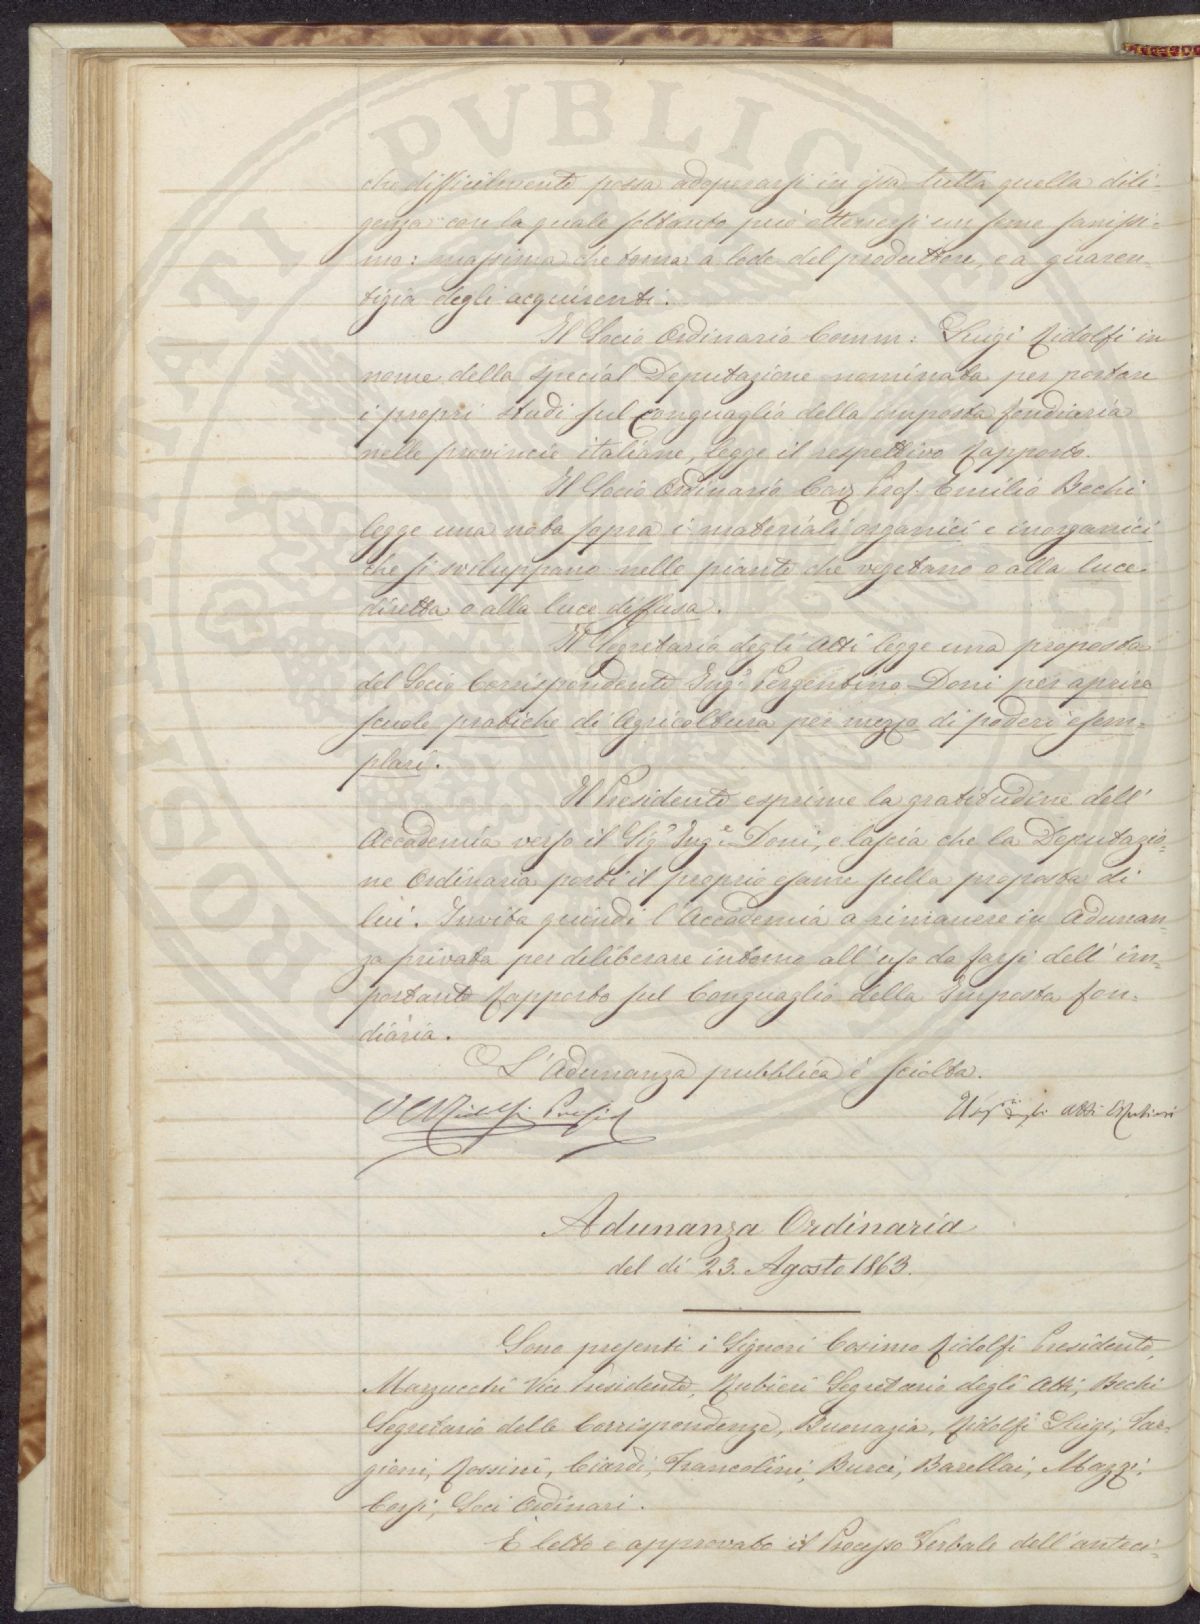 che difficilmente possa adoperarsi in essa tutta quella dili-
genza con la quale soltanto può ottenersi un seme sanissi-
mo: massima che torna a lode del produttore, e a guaren-
tigia degli acquirenti.
Il Socio Ordinario Comm: Luigi Ridolfi in
nome della special Deputazione nominata per portare
i propri studi sul conguaglio della imposta fondiaria
nelle provincie italiane, legge il respettivo Rapporto.
Il Socio Ordinario Cav Prof. Emilio Bechi
legge una nota sopra i materiali organici e inorganici
che si sviluppano nelle piante che vegetano o alla luce
diretta o alla luce diffusa.
Il Segretario degli Atti legge una proposta
del Socio Corrispondente Ing: Pergentino Doni per aprire
scuole pratiche di Agricoltura per mezzo di poderi esem-
plari.
Il Presidente esprime la gratitudine dell'
Accademia verso il Sigr Inge Doni, e lascia che la Deputazio-
ne Ordinaria porti il proprio esame sulla proposta di
lui. Invita quindi l'Accademia a rimanere in Adunan-
za privata per deliberare intorno all'uso da farsi dell'im-
portante Rapporto sul Conguaglio della Imposta fon-
diaria.
L'Adunanza pubblica è sciolta.
Ridolfi Presid
degli Atti Rubieri
Adunanza Ordinaria
del dì 23. Agosto 1863.
Sono presenti i Signori Cosimo Ridolfi Presidente,
Marzucchi Vice Presidente, Rubieri Segretario degli Atti, Bechi
Segretario delle Corrispondenze, Buonazia, Ridolfi Luigi, Tar-
gioni, Rossini, Ciardi, Francolini, Burci, Barellai, Mazzi,
Corsi, Soci Ordinari.
È letto e approvato il Processo Verbale dell'anteci-